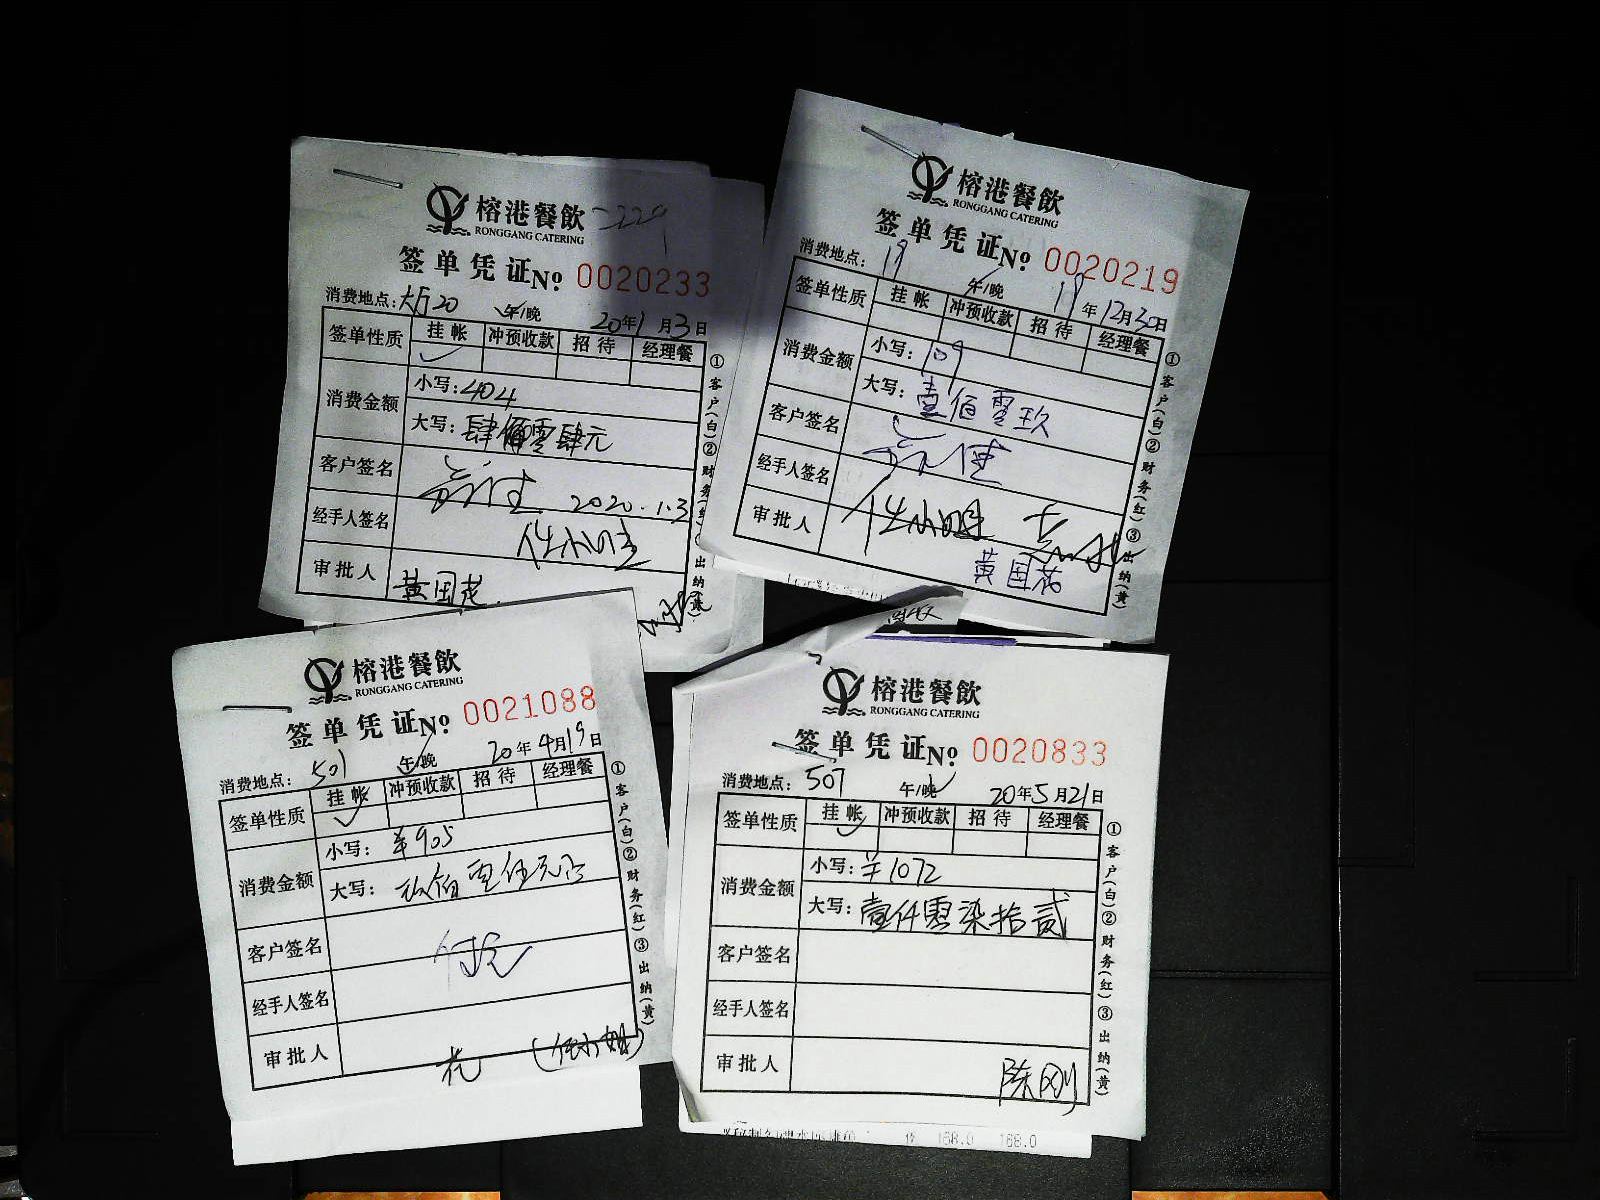 榕港餐飲
RONGGANG CATERING
签单凭证No: 0020233
消费地点: 大厅20 午/晚 20年1月3日
签单性质 挂帐 冲预收款 招待 经理餐
消费金额
小写: 404
大写: 肆佰零肆元
客户签名 2020.1.3
经手人签名
审批人
①客户(白)②财务(红)③出纳(黄)
榕港餐飲
RONGGANG CATERING
签单凭证No: 0020219
消费地点: 19 午/晚 19年12月30日
签单性质 挂帐 冲预收款 招待 经理餐
消费金额
小写: 109
大写: 壹佰零玖
客户签名
经手人签名
审批人
①客户(白)②财务(红)③出纳(黄)
榕港餐飲
RONGGANG CATERING
签单凭证No: 0021088
消费地点: 501 午/晚 20年4月19日
签单性质 挂帐 冲预收款 招待 经理餐
消费金额
小写: ¥905
大写: 玖佰零伍元
客户签名
经手人签名
审批人
①客户(白)②财务(红)③出纳(黄)
榕港餐飲
RONGGANG CATERING
签单凭证No: 0020833
消费地点: 507 午/晚 20年5月21日
签单性质 挂帐 冲预收款 招待 经理餐
消费金额
小写: ¥1072
大写: 壹仟零柒拾贰
客户签名
经手人签名
审批人 陈刚
①客户(白)②财务(红)③出纳(黄)
168.0 168.0